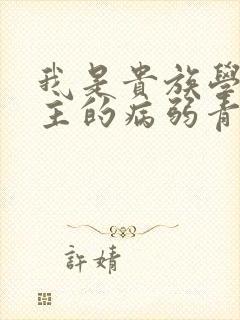 我是貴族學
主的病弱青
許婧